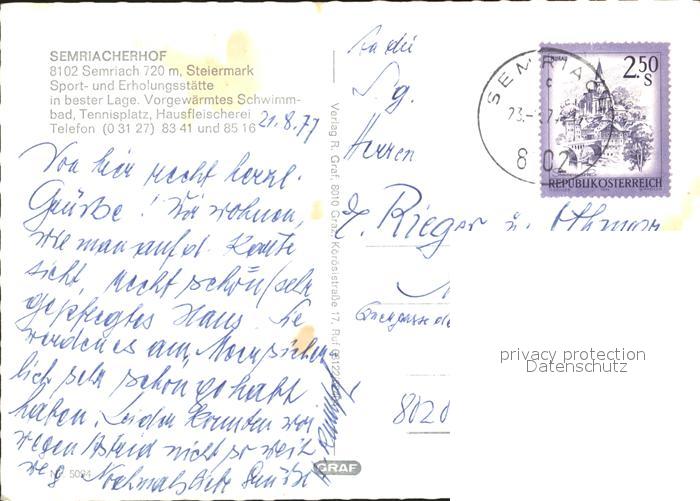 SEMRIACHERHOF
8102 Semriach 720 m, Steiermark
Sport- und Erholungsstätte
in bester Lage. Vorgewärmtes Schwimm-
bad, Tennisplatz, Hausfleischerei
Telefon (0 31 27) 83 41 und 85 16
21.8.77
Von hier recht herzl.
Grüße! Wir wohnen,
wie man auf d. Karte
sieht, recht schön (sehr
gepflegtes Haus. Sie
werden es am
lich sehr schön gehabt
haben. Leider konnten wir
wegen nicht so weit
weg. Nochmals liebe Grüße
Nr. 5094
Verlag R. Graf, 8010 Graz, Körösistraße 17, Ruf
GRAF
An die
Herren
Rieger u. Othmar
8020
SEMRIACH
8102
2.50
S
REPUBLIK ÖSTERREICH
privacy protection
Datenschutz